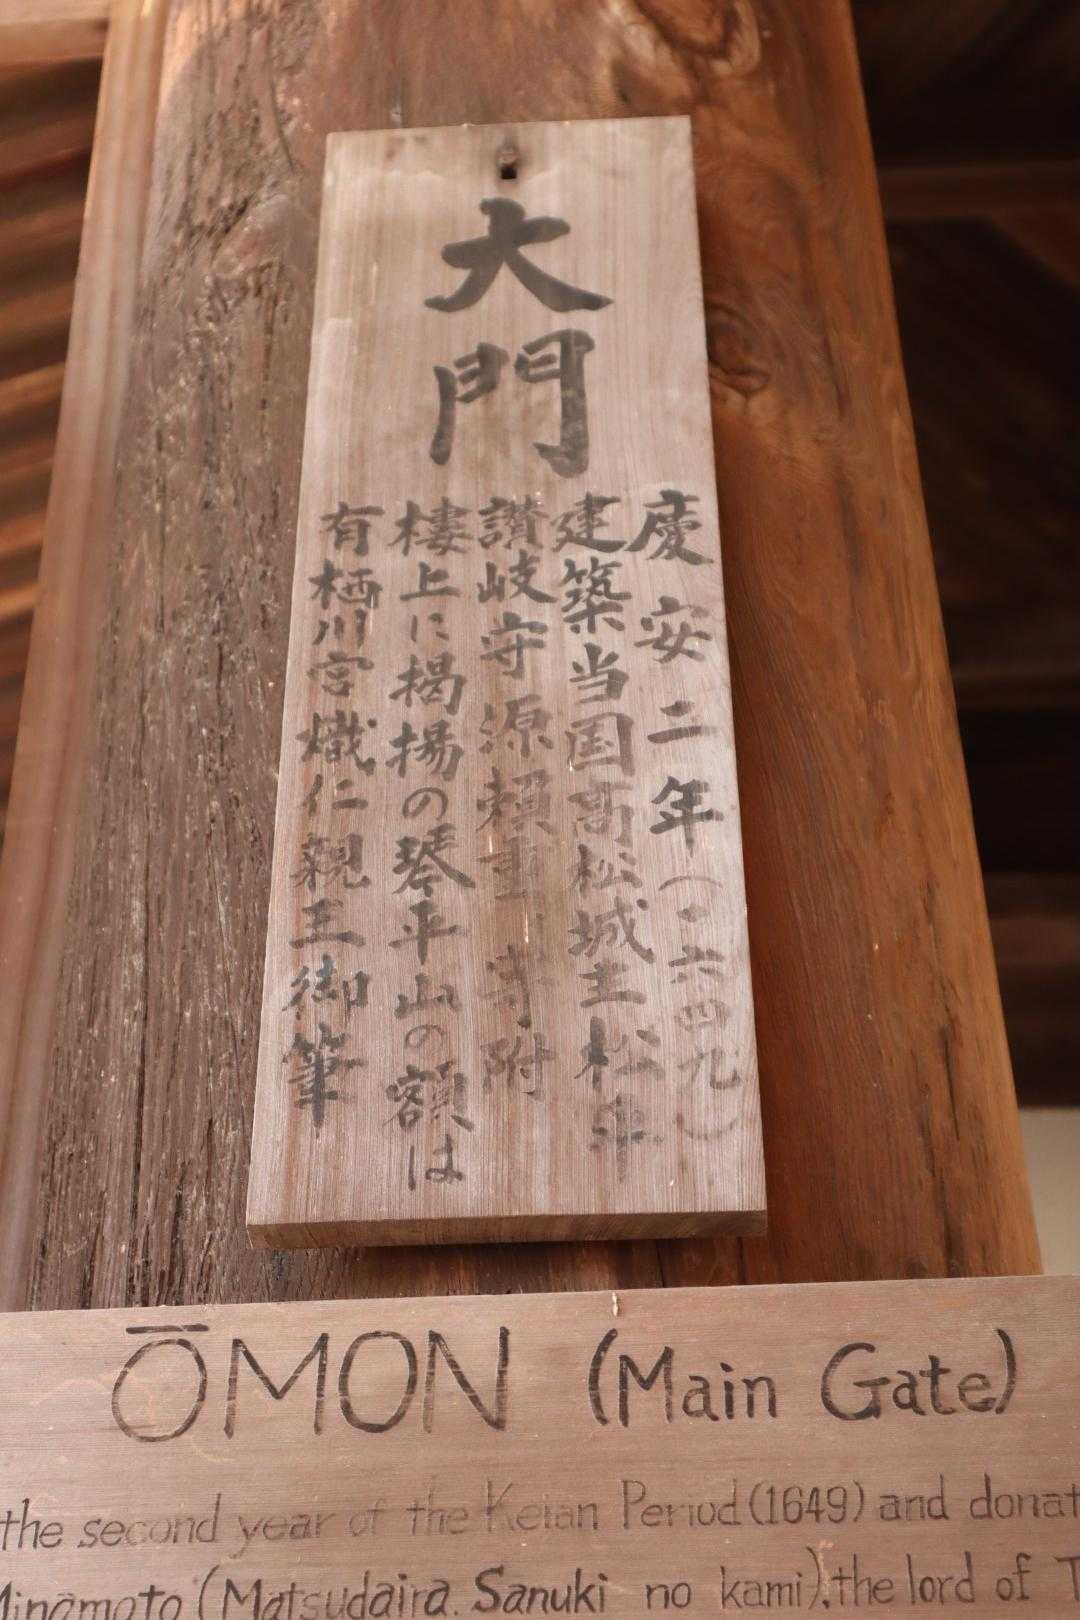 大門
慶安二年(一六四九)
建築当国高松城主松平
讃岐守源頼重、寄附
樓上に揭揚の琴平山の額は
有栖川宮熾仁親王御筆
ŌMON (Main Gate)
the second year of the Keian Period (1649) and donat
Minamoto (Matsudaira. Sanuki no kami), the lord of T